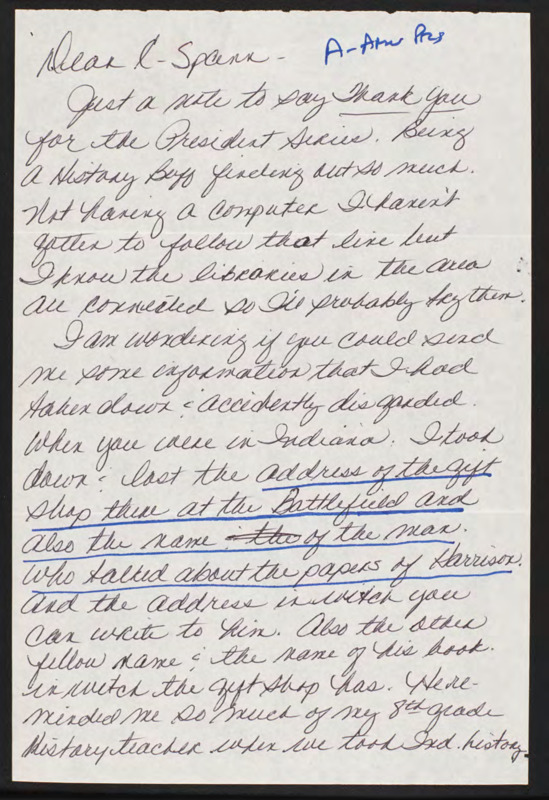 Dear C-Span -
A-Amer Pres
Just a note to say Thank You
for the President Series. Being
a History Buff finding out so much.
Not having a computer I haven't
gotten to follow that line but
I know the libraries in the area
are connected so I'll probably try them.
I am wondering if you could send
me some information that I had
taken down & accidently disgarded.
When you were in Indiana. I took
down & lost the address of the gift
shop there at the Battlefield and
also the name the of the man.
Who talked about the papers of Harrison.
And the address in witch you
can write to him. Also the other
fellow name & the name of his book.
in witch the gift shop has. He re-
minded me so much of my 8th grade
History teacher when we took Ind. history